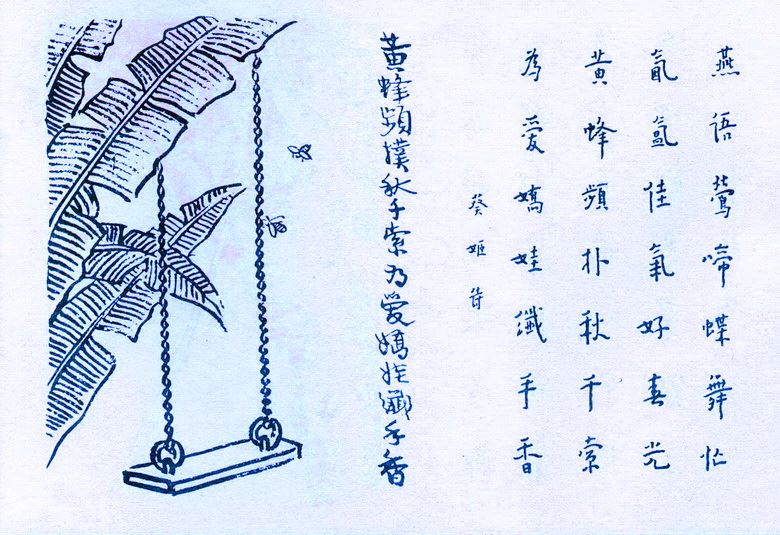 燕语鶯啼蝶舞忙
氤氲佳氣好春光
黄蜂頻扑秋千索
為愛嬌娃纖手香
葵姬诗
黄蜂頻撲秋千索为愛嬌娃纖手香